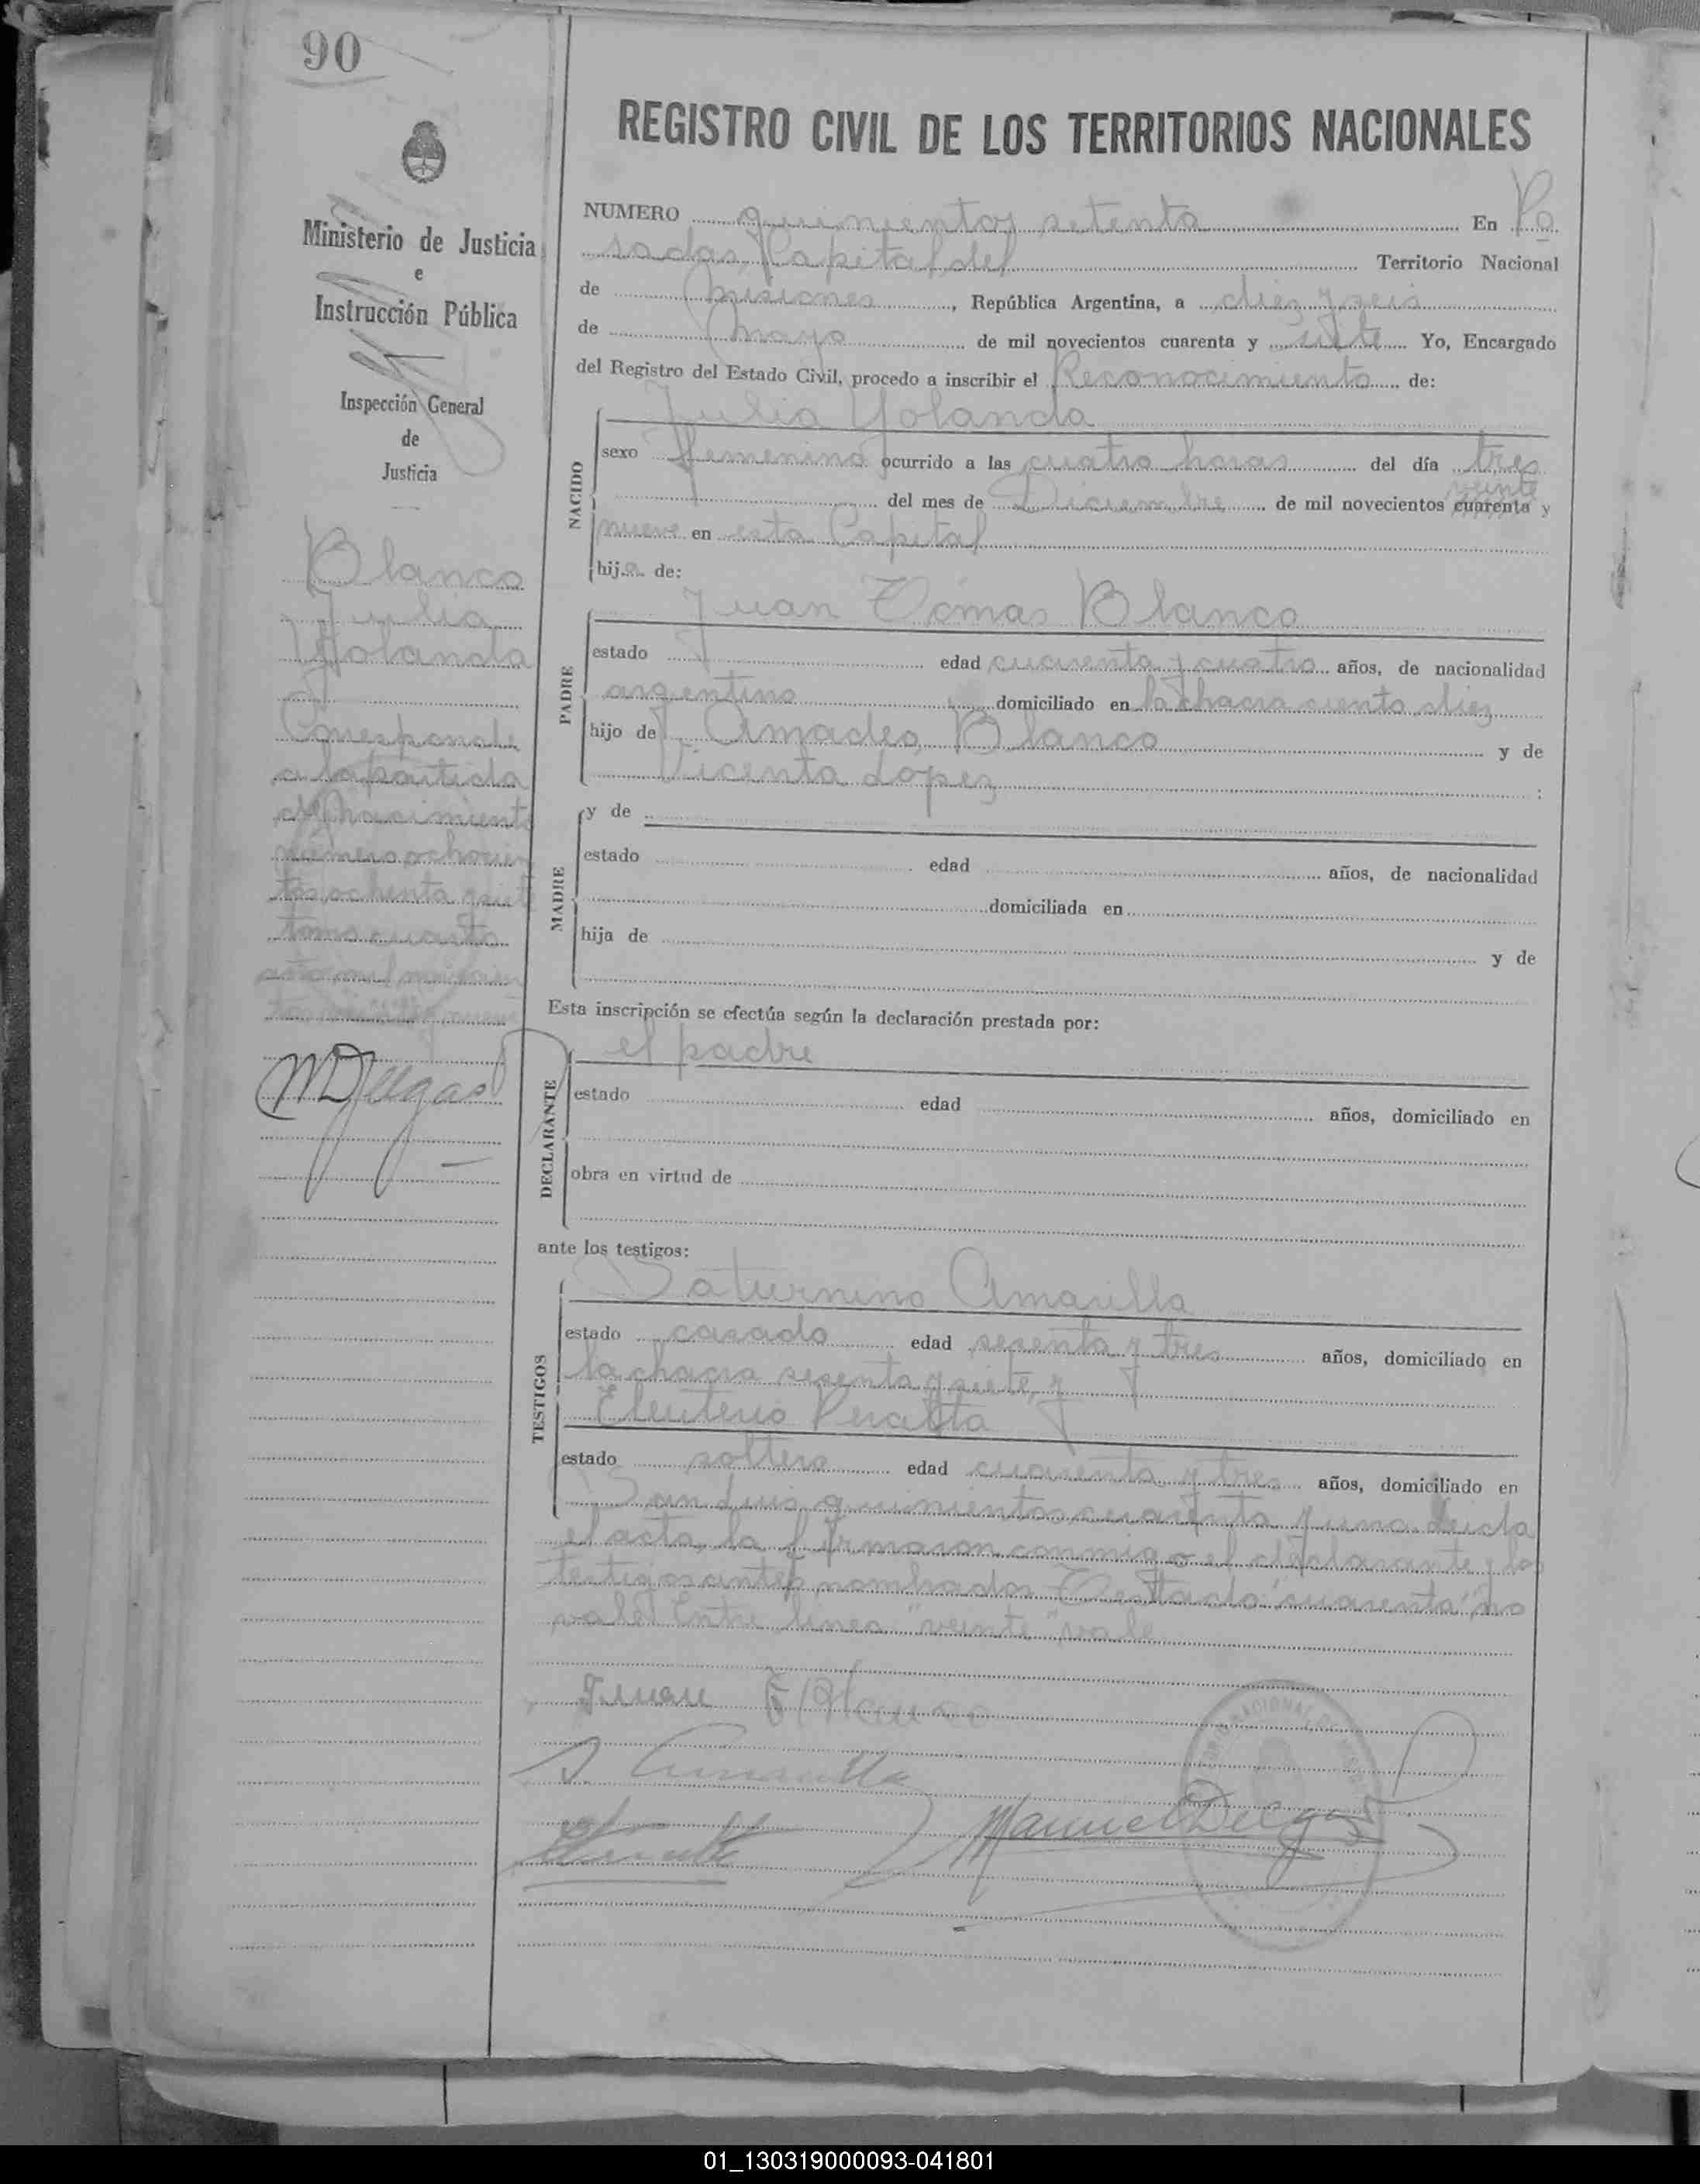 90
REGISTRO CIVIL DE LOS TERRITORIOS NACIONALES
Ministerio de Justicia
e
Instrucción Pública
Inspección General
de
Justicia
Blanco
Julia
Yolanda
Corresponde
a la partida
de Nacimiento
número ochocien
tos ochenta y siete
tomo cuarto
año mil novecien
tos veinte y nueve
NUMERO quinientos setenta En Po
sadas, Capital del Territorio Nacional
de Misiones, República Argentina, a diez y seis
de Mayo de mil novecientos cuarenta y siete Yo, Encargado
del Registro del Estado Civil, procedo a inscribir el Reconocimiento de:
NACIDO
Julia Yolanda
sexo femenino ocurrido a las cuatro horas del día tres
veinte
del mes de Diciembre de mil novecientos cuarenta y
nueve en esta Capital
hija de:
PADRE
Juan Tomas Blanco
estado edad cuarenta y cuatro años, de nacionalidad
argentino domiciliado en la chacra ciento diez
hijo de Amadeo Blanco y de
Vicenta Lopez :
MADRE
y de
estado edad años, de nacionalidad
domiciliada en
hija de y de
Esta inscripción se efectúa según la declaración prestada por:
DECLARANTE
el padre
estado edad años, domiciliado en
obra en virtud de
ante los testigos:
TESTIGOS
Saturnino Amarilla
estado casado edad sesenta y tres años, domiciliado en
la chacra sesenta y siete, y
Eleuterio Peralta
estado soltero edad cuarenta y tres años, domiciliado en
San Luis quinientos cuarenta y uno. Leida
el acta, la firmaron conmigo el declarante y los
testigos antes nombrados Testado "cuarenta" no
vale Entre línea "veinte" vale
Juan T Blanco
S. Amarilla
Manuel Delgado
01_130319000093-041801